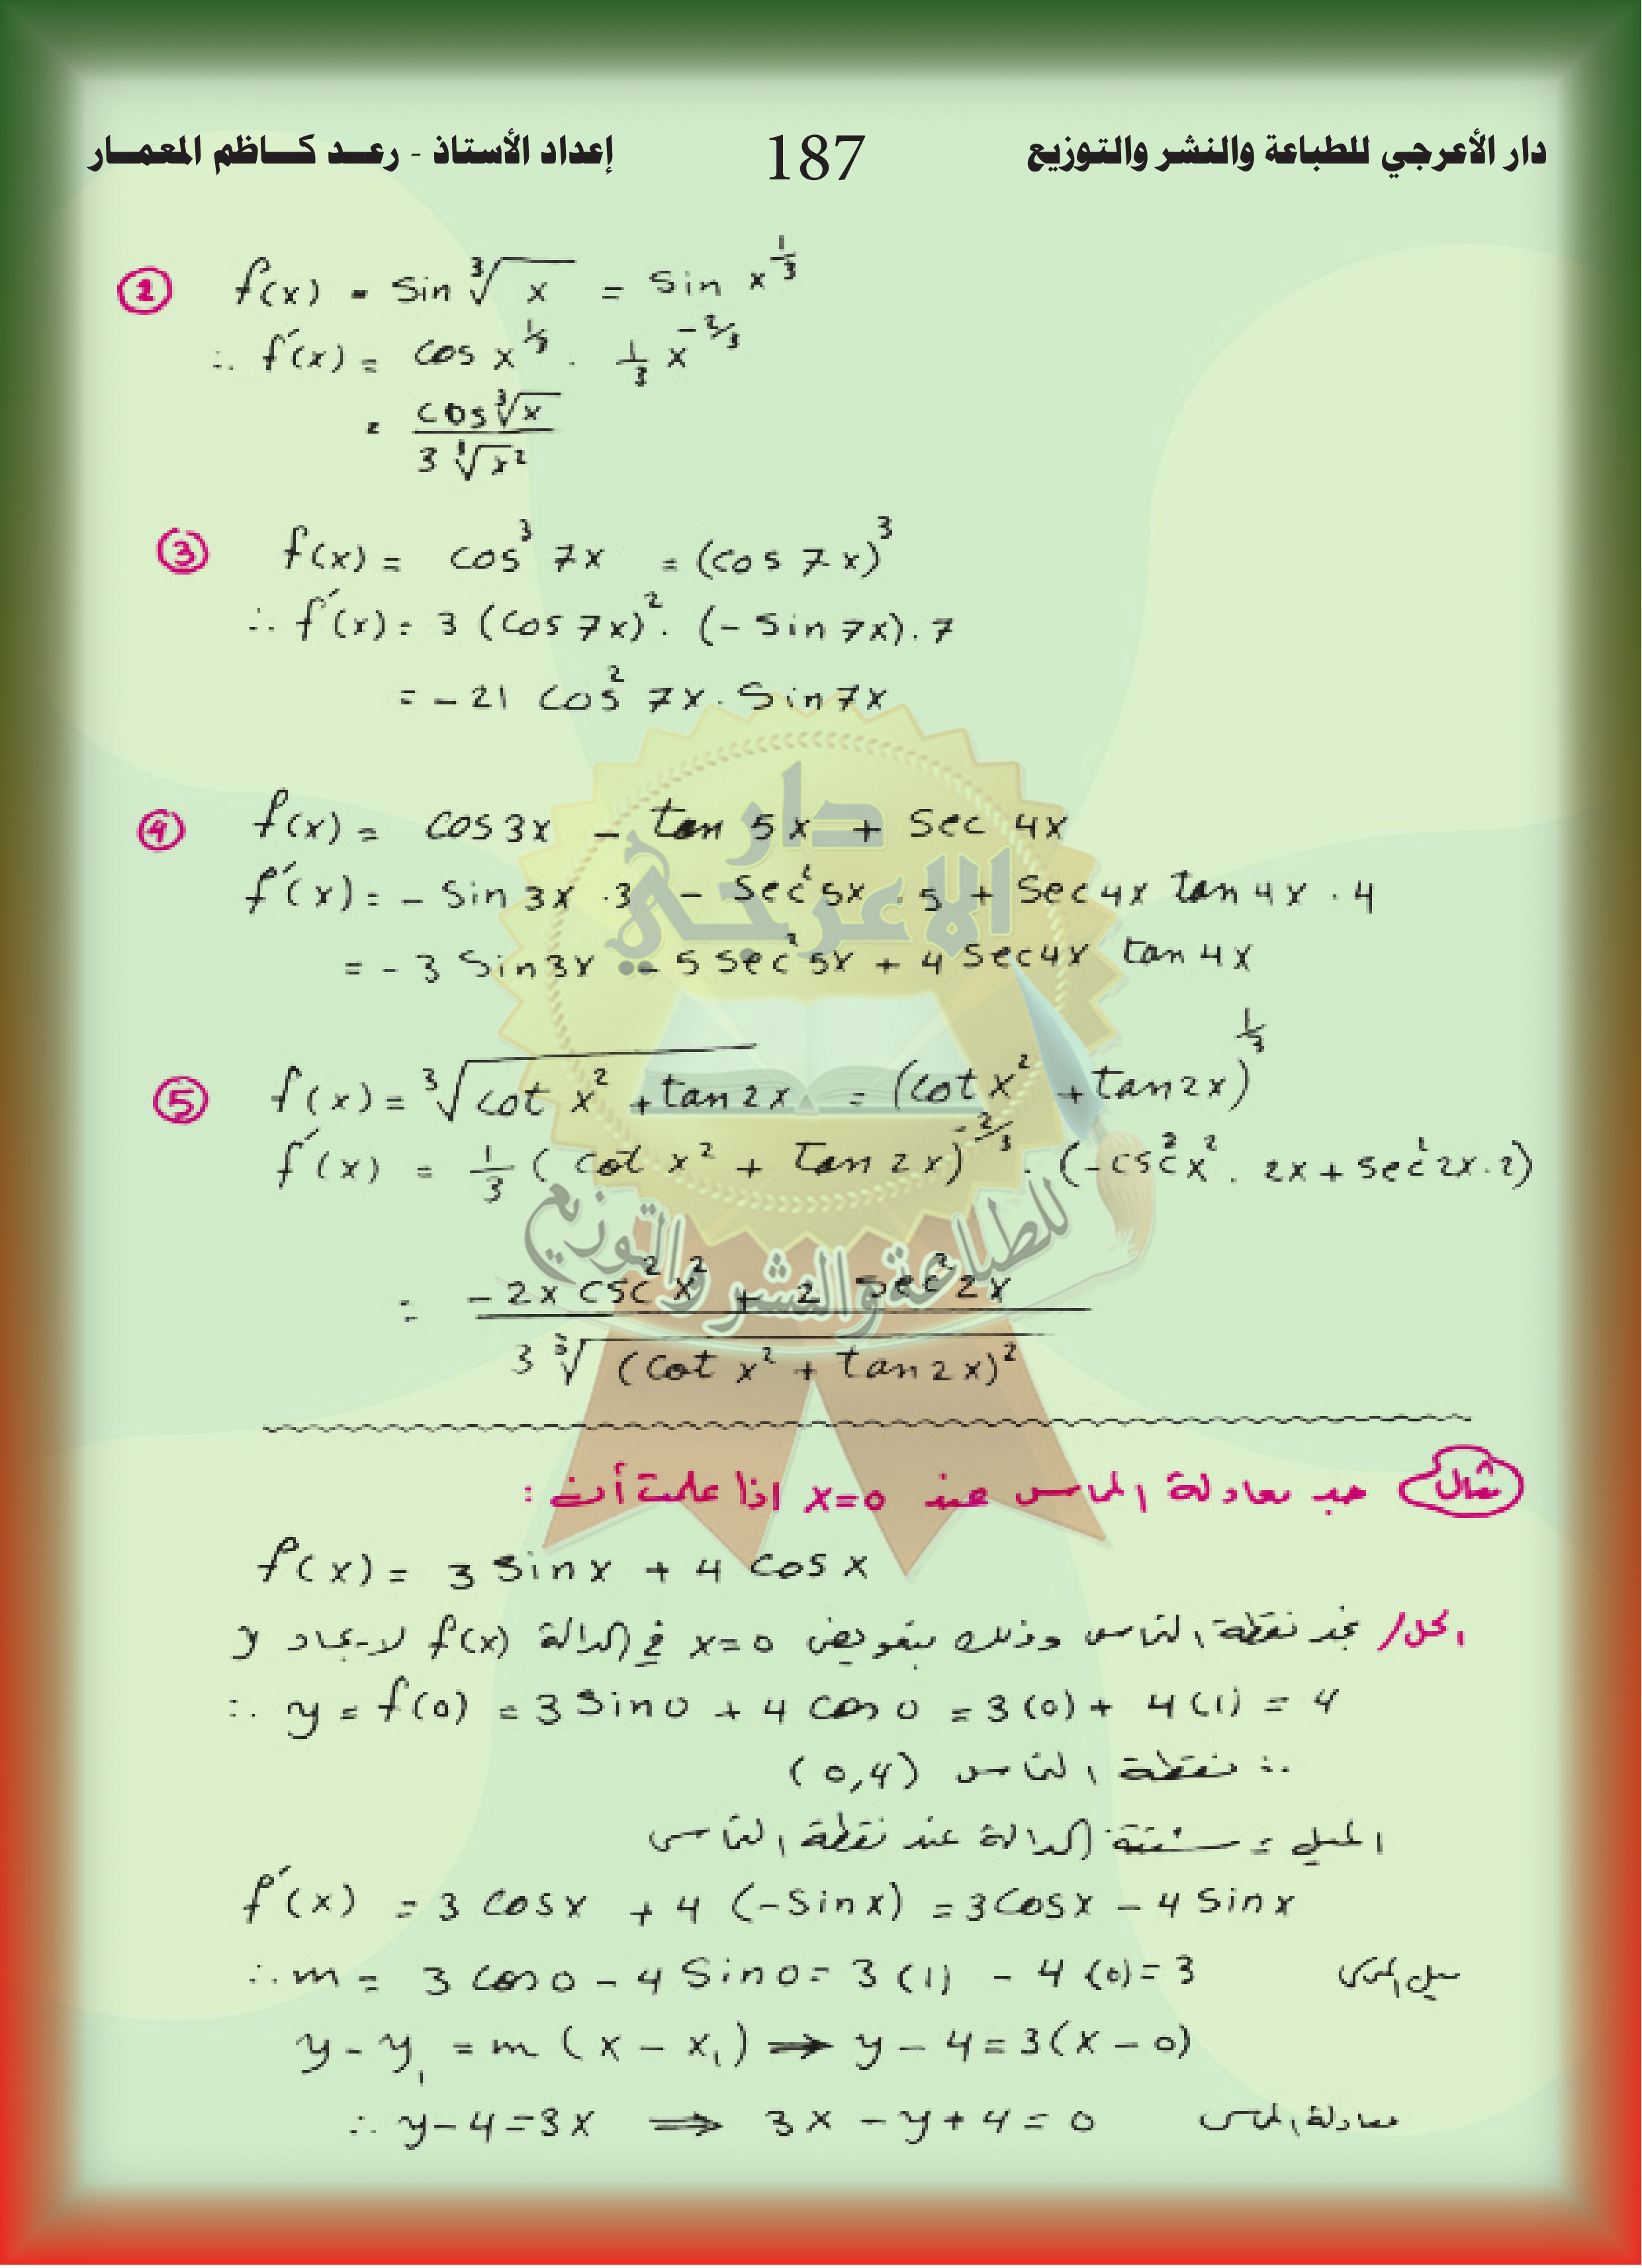 دار الأعرجي للطباعة والنشر والتوزيع 187 إعداد الأستاذ - رعد كاظم المعمار
② f(x) = sin ∛x = sin x^(1/3)
∴ f′(x) = cos x^(1/3) · 1/3 x^(-2/3)
= cos ∛x / 3 ∛x²
③ f(x) = cos³ 7x = (cos 7x)³
∴ f′(x) = 3 (cos 7x)² · (- sin 7x) . 7
= - 21 cos² 7x . sin 7x
④ f(x) = cos 3x - tan 5x + sec 4x
f′(x) = - sin 3x . 3 - sec² 5x . 5 + sec 4x tan 4x . 4
= - 3 sin 3x - 5 sec² 5x + 4 sec 4x tan 4x
⑤ f(x) = ∛(cot x² + tan 2x) = (cot x² + tan 2x)^(1/3)
f′(x) = 1/3 (cot x² + tan 2x)^(-2/3) . (- csc² x² . 2x + sec² 2x . 2)
= (- 2x csc² x² + 2 sec² 2x) / 3 ∛(cot x² + tan 2x)²
مثال جد معادلة المماس عند x=0 اذا علمت أن :
f(x) = 3 sin x + 4 cos x
الحل/ نجد نقطة التماس وذلك بتعويض x=0 في الدالة f(x) لايجاد y
∴ y = f(0) = 3 sin 0 + 4 cos 0 = 3 (0) + 4 (1) = 4
∴ نقطة التماس (0,4)
الميل = مشتقة الدالة عند نقطة التماس
f′(x) = 3 cos x + 4 (- sin x) = 3 cos x - 4 sin x
∴ m = 3 cos 0 - 4 sin 0 = 3 (1) - 4 (0) = 3
y - y₁ = m (x - x₁) ⇒ y - 4 = 3(x - 0)
∴ y - 4 = 3x ⇒ 3x - y + 4 = 0 معادلة المماس
دار
الاعرجي
للطباعة والنشر والتوزيع